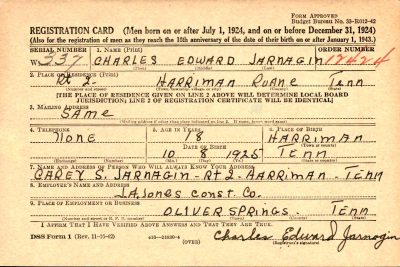 FORM APPROVED
Budget Bureau No. 33-R012-42
REGISTRATION CARD (Men born on or after July 1, 1924, and on or before December 31, 1924)
(Also for the registration of men as they reach the 18th anniversary of the date of their birth on or after January 1, 1943.)
SERIAL NUMBER 1. NAME (Print) ORDER NUMBER
W 237 CHARLES EDWARD JARNAGIN 12424
(First) (Middle) (Last)
2. PLACE OF RESIDENCE (Print)
Rt 2. HARRIMAN ROANE TENN
[THE PLACE OF RESIDENCE GIVEN ON LINE 2 ABOVE WILL DETERMINE LOCAL BOARD
JURISDICTION; LINE 2 OF REGISTRATION CERTIFICATE WILL BE IDENTICAL]
3. MAILING ADDRESS
SAME
[Mailing address if other than place indicated on line 2. If same, insert word same]
4. TELEPHONE 5. AGE IN YEARS 6. PLACE OF BIRTH
NONE 18 HARRIMAN
DATE OF BIRTH (Town or county)
10 8 1925 TENN
(Mo.) (Day) (Yr.) (State or country)
7. NAME AND ADDRESS OF PERSON WHO WILL ALWAYS KNOW YOUR ADDRESS
CAREY S. JARNAGIN - Rt 2 - HARRIMAN - TENN
8. EMPLOYER'S NAME AND ADDRESS
J.A. Jones Const. Co.
9. PLACE OF EMPLOYMENT OR BUSINESS
OLIVER SPRINGS. TENN
(Number and street or R. F. D. number) (Town) (County) (State)
I AFFIRM THAT I HAVE VERIFIED ABOVE ANSWERS AND THAT THEY ARE TRUE.
DSS Form 1 (Rev. 11-16-42) (OVER) Charles Edward Jarnagin
(Registrant's signature)